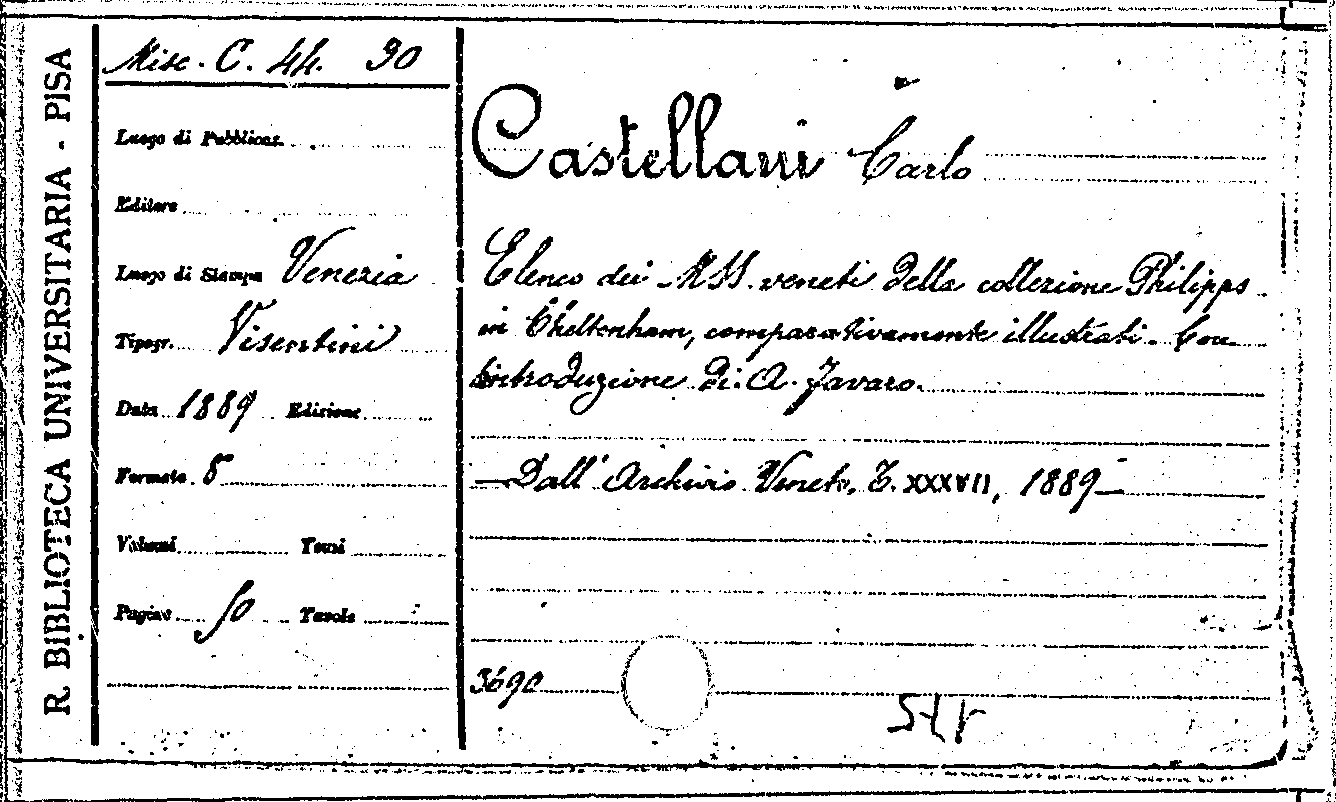 R. BIBLIOTECA UNIVERSITARIA - PISA
Misc. C. 44. 30
Luogo di Pubblicaz.
Editore
Luogo di Stampa Venezia
Tipogr. Visentini
Data 1889 Edizione
Formato 8
Volumi Tomi
Pagine 50 Tavole
Castellani Carlo
Elenco dei MSS. veneti della collezione Philipps
in Cheltenham, comparativamente illustrati. Con
introduzione di A. Favaro.
— Dall' Archivio Veneto, T. XXXVII, 1889 —
3690